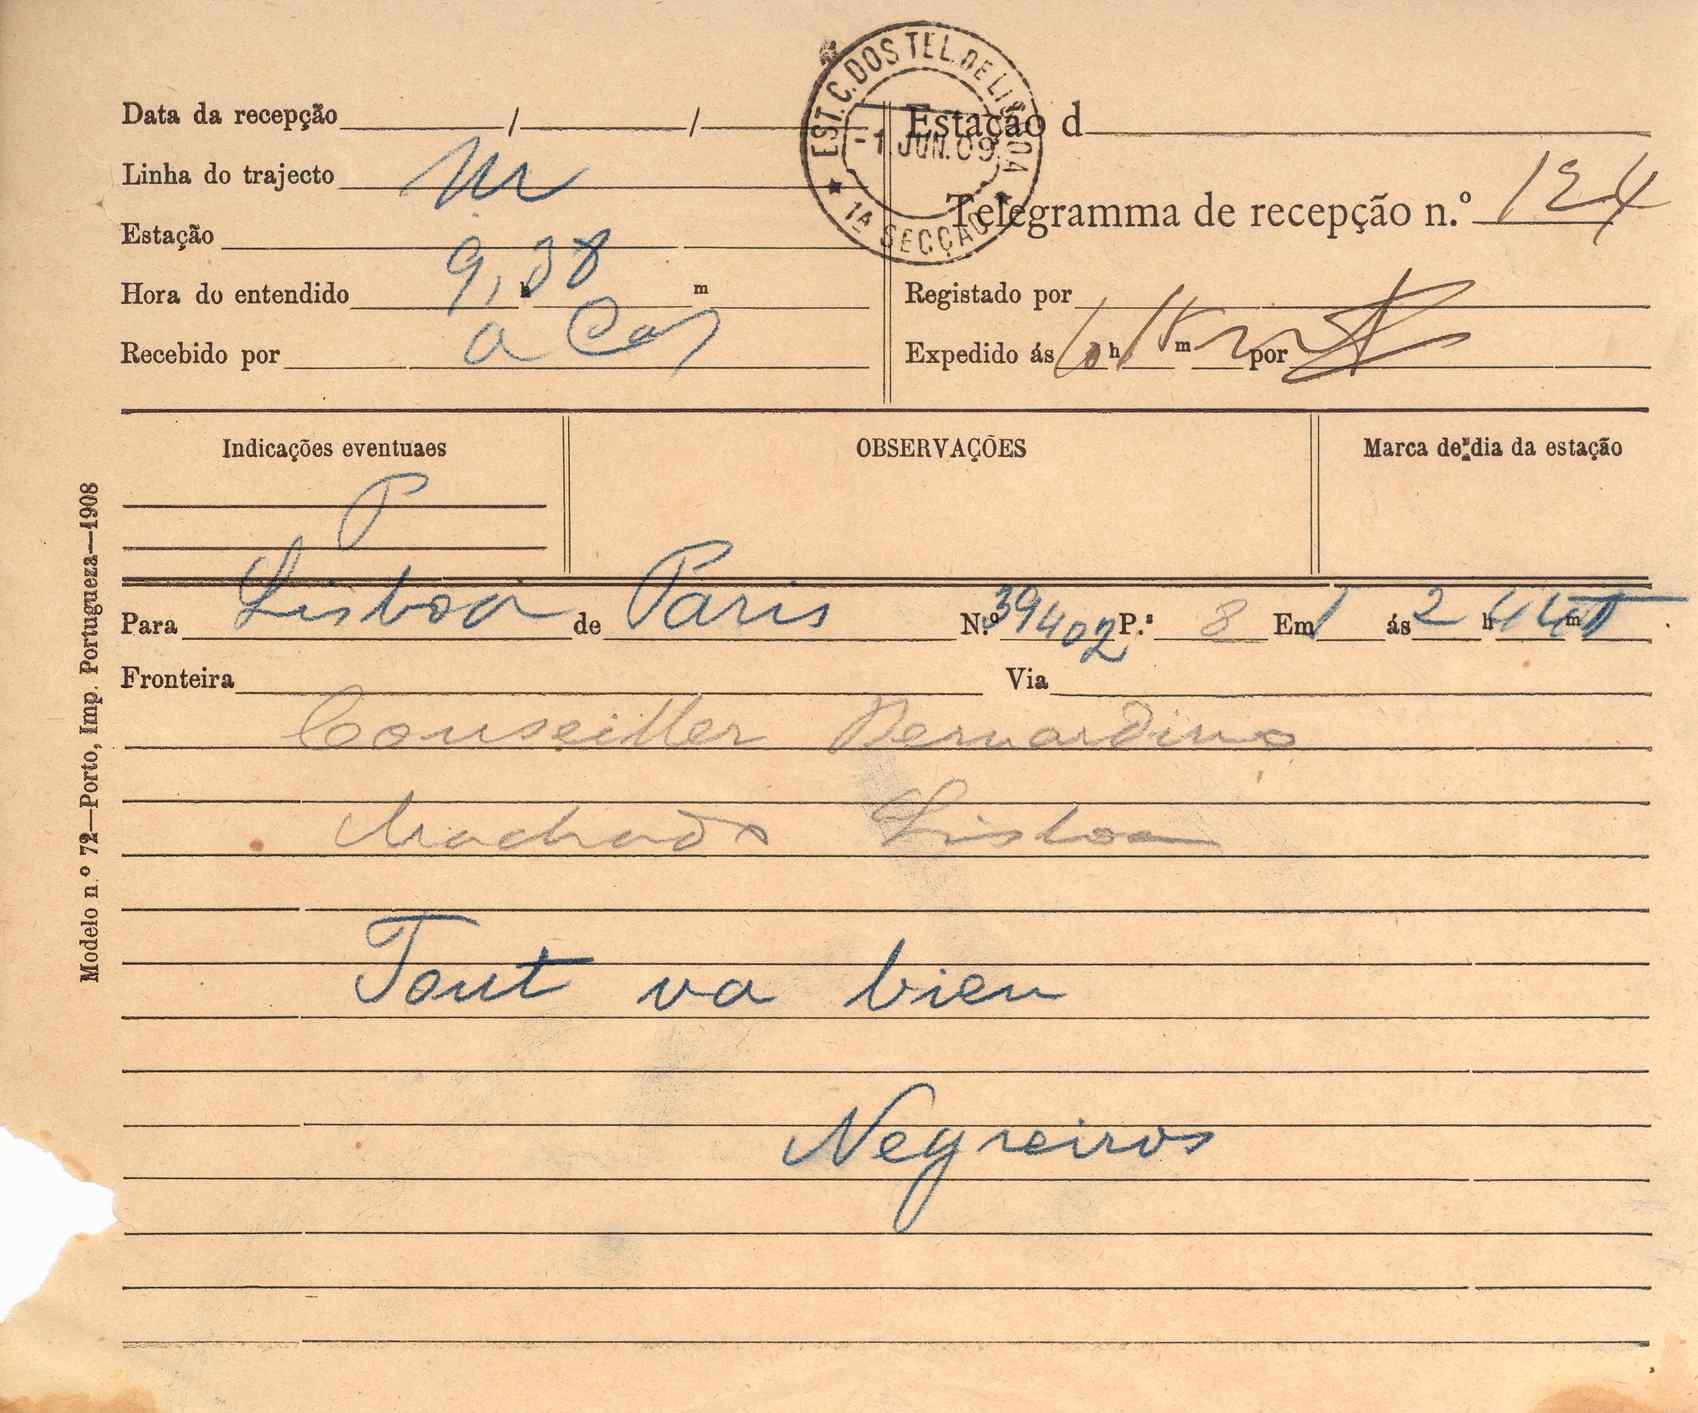 EST. C. DOS TEL. DE LISBOA
-1 JUN. 09
1ª SECÇÃO
Data da recepção / /
Linha do trajecto
Estação
Hora do entendido 9,38 h m
Recebido por
Estação d
Telegramma de recepção n.º 124
Registado por
Expedido ás h m por
Indicações eventuaes
P
OBSERVAÇÕES
Marca de dia da estação
Para Lisboa de Paris N.º 39402 P.ª 8 Em 1 ás 2 h m
Fronteira Via
Conseiller Bernardino
Machado Lisboa
Tout va bien
Negreiros
Modelo n.º 72—Porto, Imp. Portugueza—1908